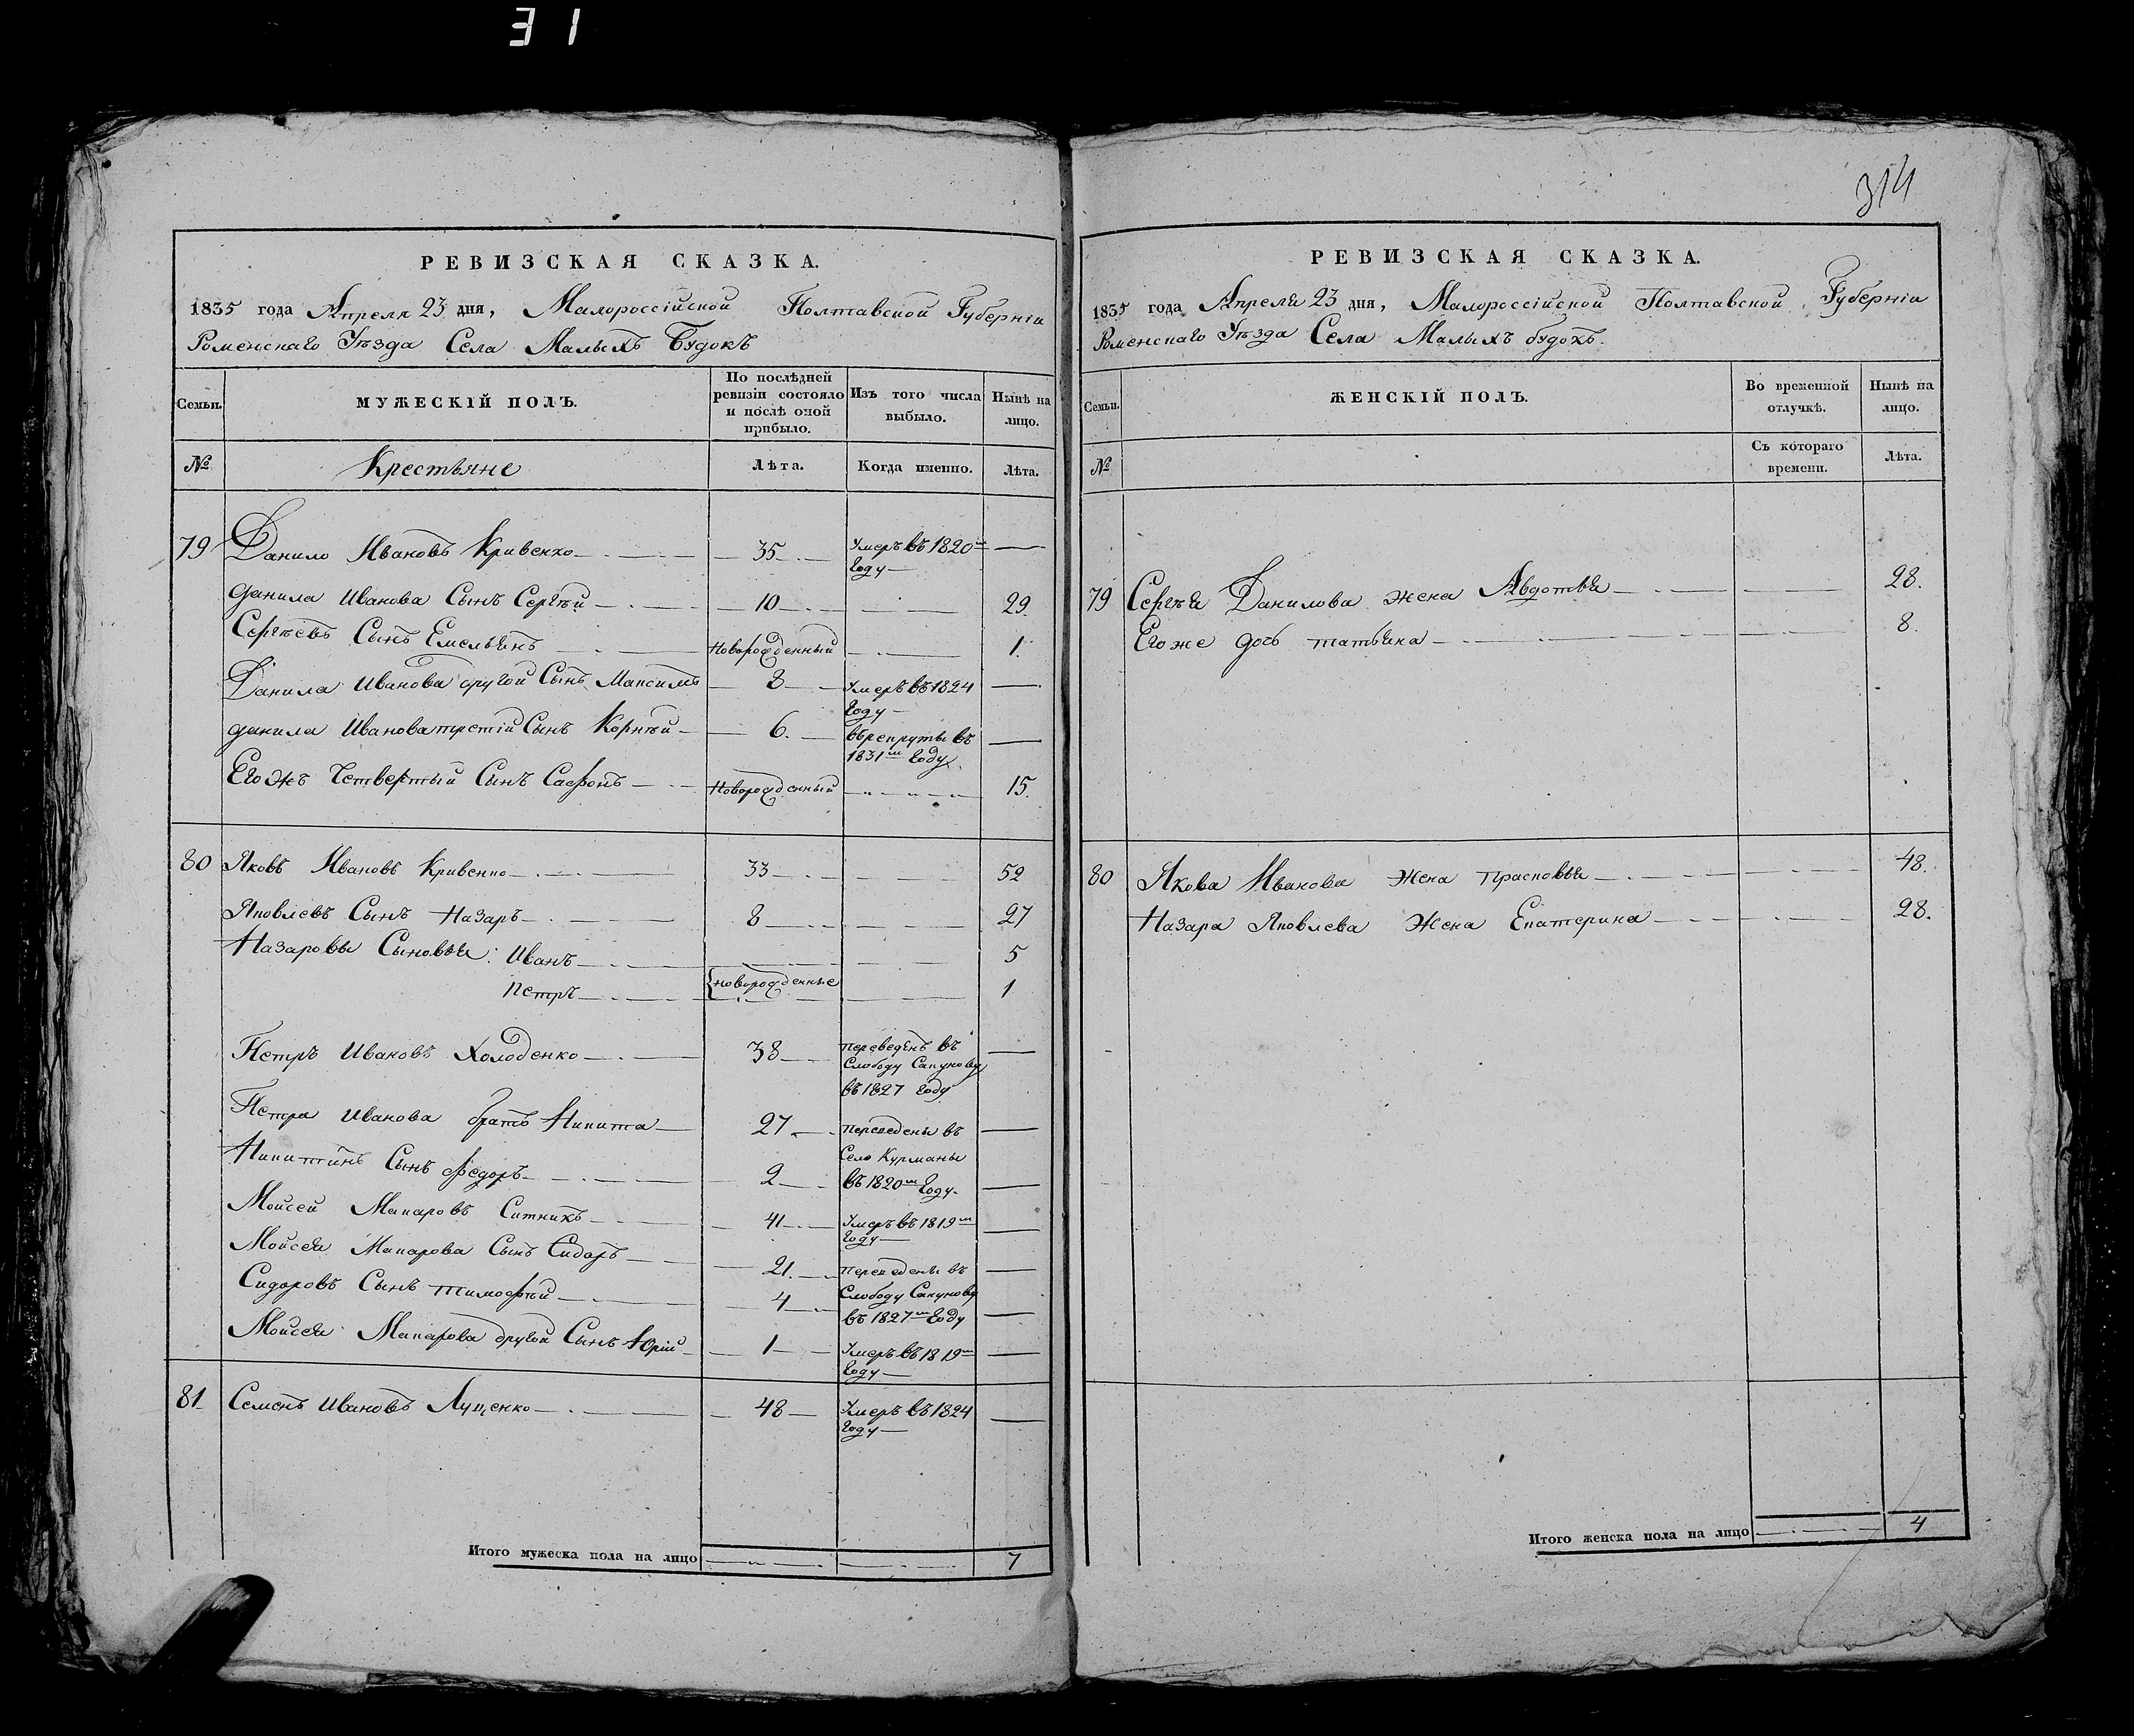 31
РЕВИЗСКАЯ СКАЗКА.
1835 года Апреля 23 дня, Малороссійской Полтавской Губерніи
Роменскаго Уѣзда Села Малыхъ Будокъ
Семьи. МУЖЕСКІЙ ПОЛЪ. По послѣдней ревизіи состояло и послѣ оной прибыло. Изъ того числа выбыло. Нынѣ на лицо.
№ Крестьяне Лѣта. Когда именно. Лѣта.
79 Данило Ивановъ Кривенко 35 Умеръ въ 1820м году
Данила Иванова Сынъ Сергѣй 10 29
Сергѣевъ Сынъ Емельянъ Новорожденный 1.
Данила Иванова другой Сынъ Максимъ 8 Умеръ въ 1824 году
Данила Иванова третій Сынъ Корнѣй 6. въ рекруты въ 1831м году
Его жъ Четвертый Сынъ Сафонъ Новорожденный 15.
80 Яковъ Ивановъ Кривенко 33 52
Яковлевъ Сынъ Назаръ 8 27
Назаровы Сыновья: Иванъ 5
Петръ новорожденные 1
Петръ Ивановъ Холоденко 38 переведенъ въ Слободу Сакунову въ 1827 году
Петра Иванова братъ Никита 27 переведены въ
Никитинъ Сынъ Федоръ 2 Село Курманы въ 1820м году
Мойсей Макаровъ Ситникъ 41 Умеръ въ 1819м году
Мойсея Макарова Сынъ Сидоръ 21. переведены въ
Сидоровъ Сынъ Тимофѣй 4 Слободу Сакунову въ 1827м году
Мойсея Макарова другой Сынъ Юрій 1 Умеръ въ 1819м году
81 Семенъ Ивановъ Лущенко 48 Умеръ въ 1824 году
Итого мужеска пола на лицо 7
314
РЕВИЗСКАЯ СКАЗКА.
1835 года Апреля 23 дня, Малороссійской Полтавской Губерніи
Роменскаго Уѣзда Села Малыхъ будокъ.
Семьи. ЖЕНСКІЙ ПОЛЪ. Во временной отлучкѣ. Нынѣ на лицо.
№ Съ котораго времени. Лѣта.
79 Сергѣя Данилова жена Авдотья 28.
Его же дочь татьяна 8.
80 Якова Иванова Жена Прасковья 48.
Назара Яковлева Жена Екатерина 28.
Итого женска пола на лицо 4